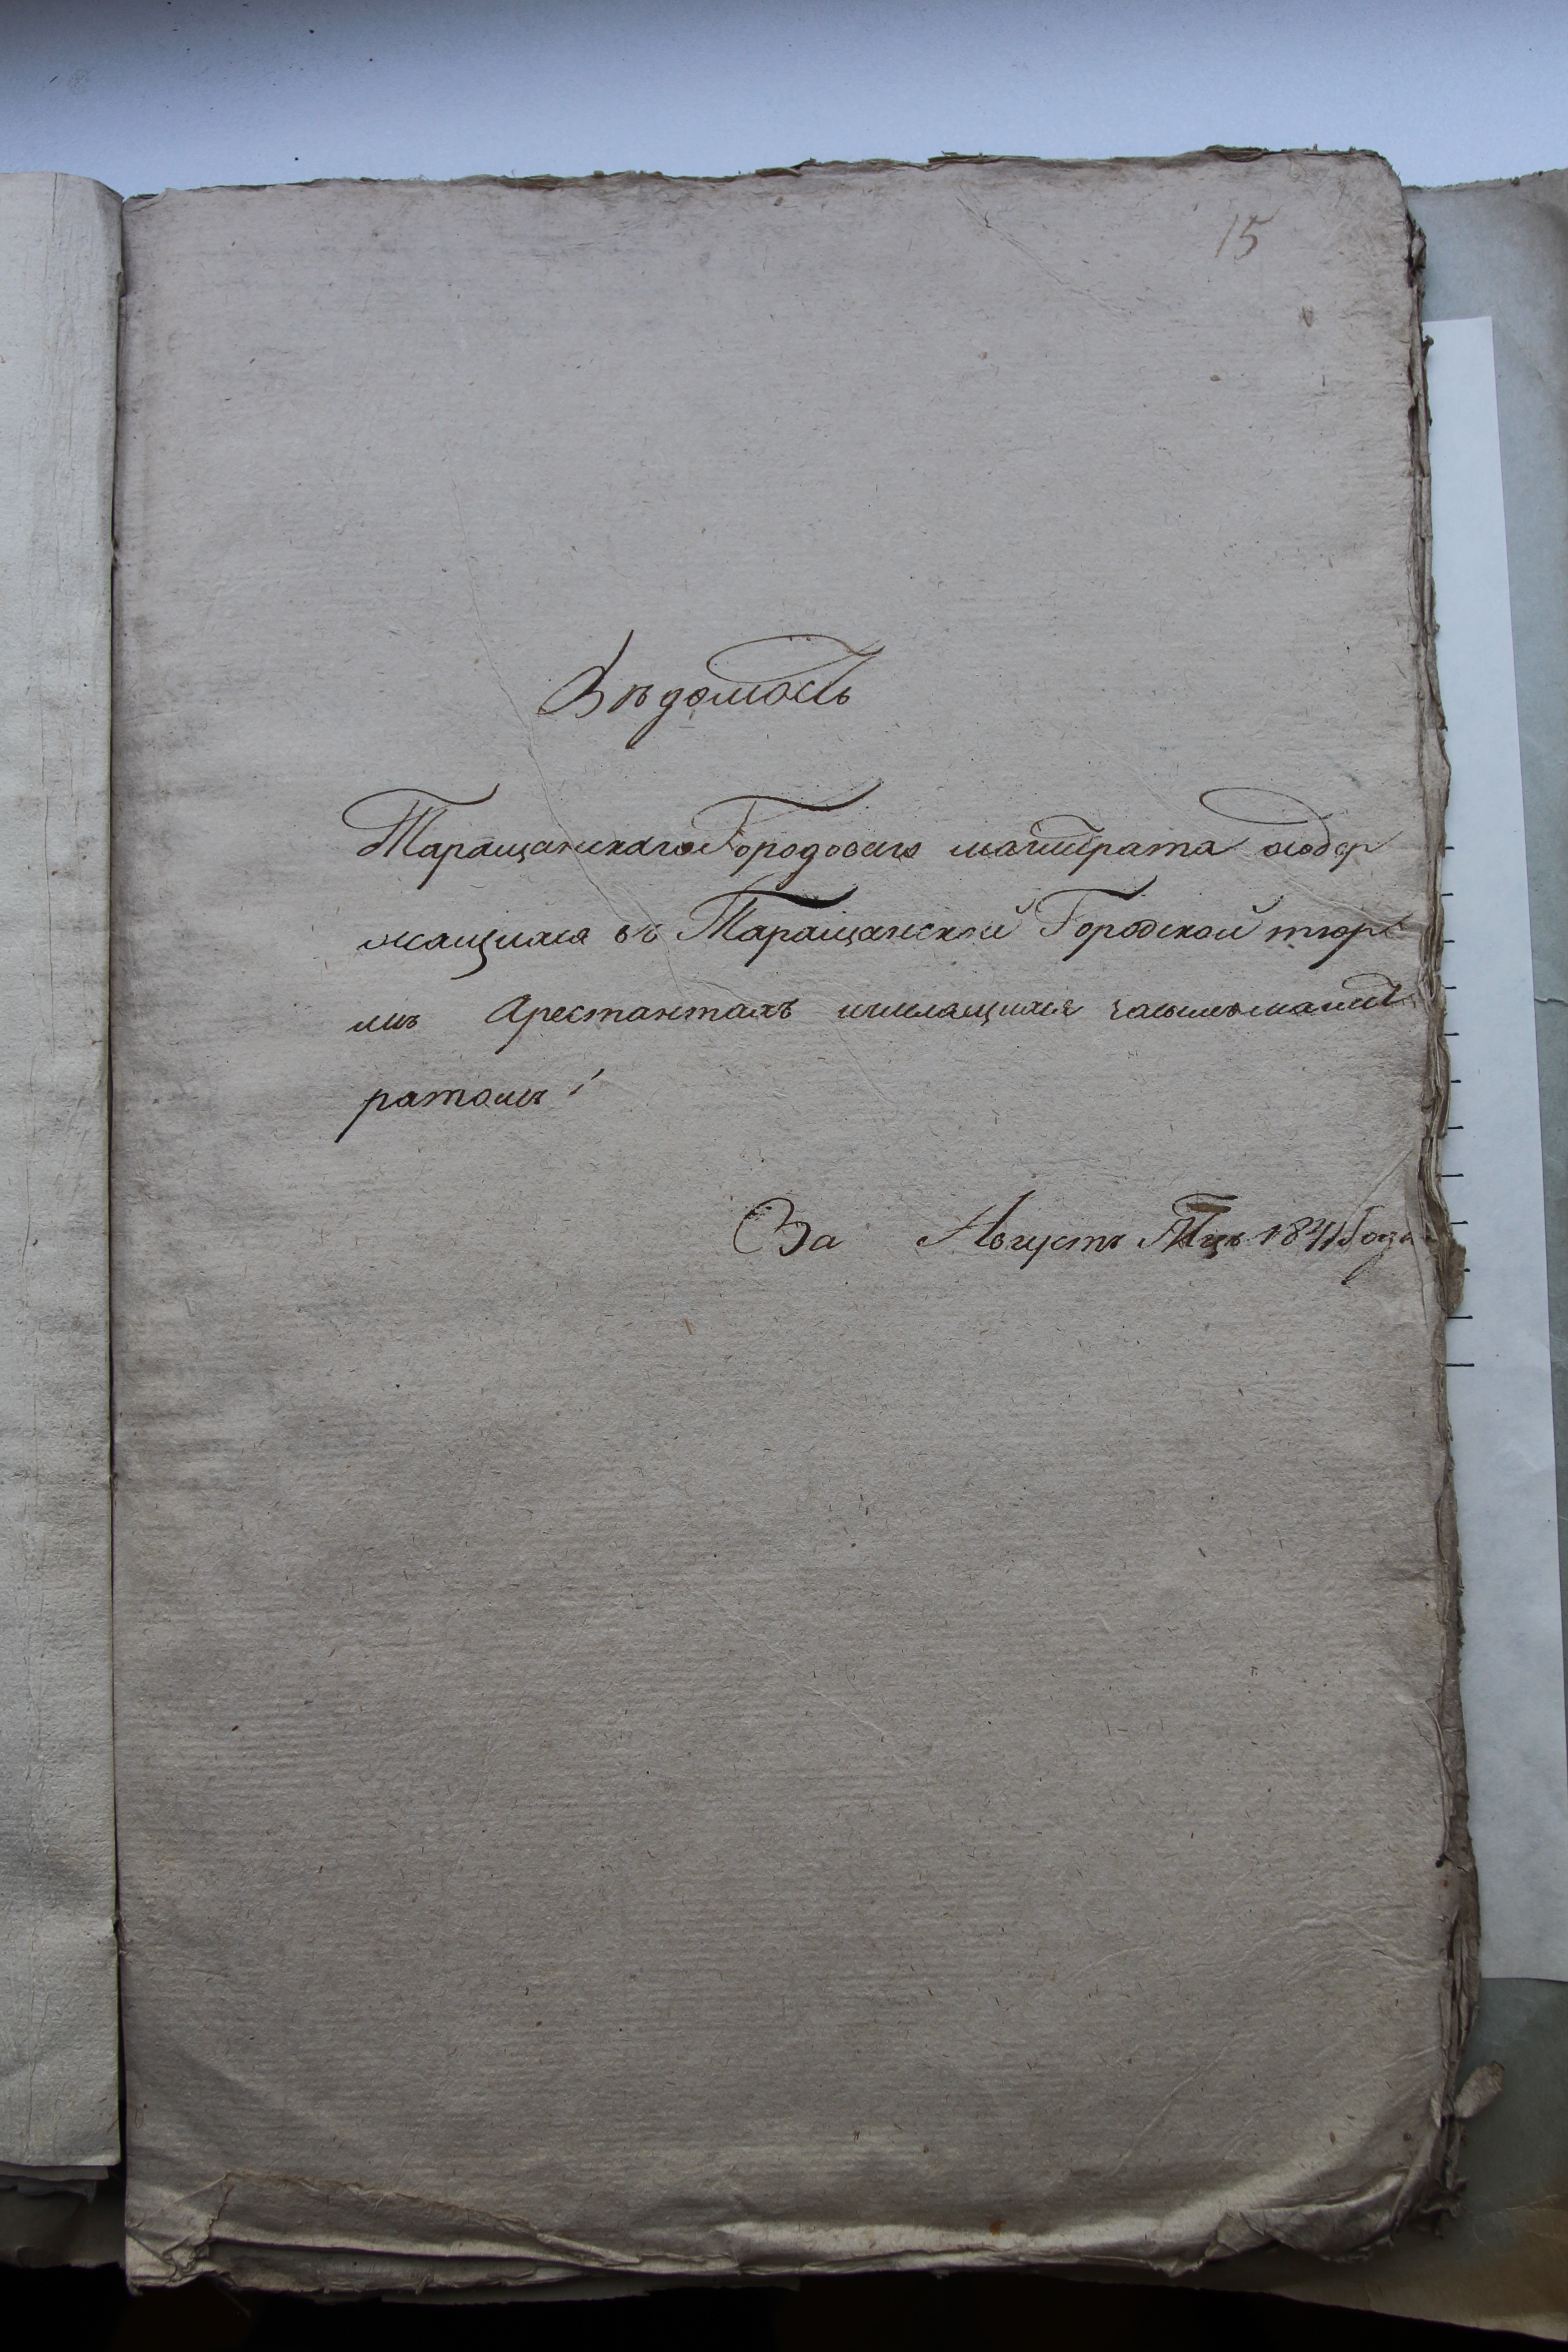 15
Вѣдомость
Таращанскаго Городоваго магистрата о содер
жащихся въ Таращанской Городской тюрь
мѣ Арестантахъ числящихся за симъ магист
ратомъ
За Августъ Мцъ 1841 Года